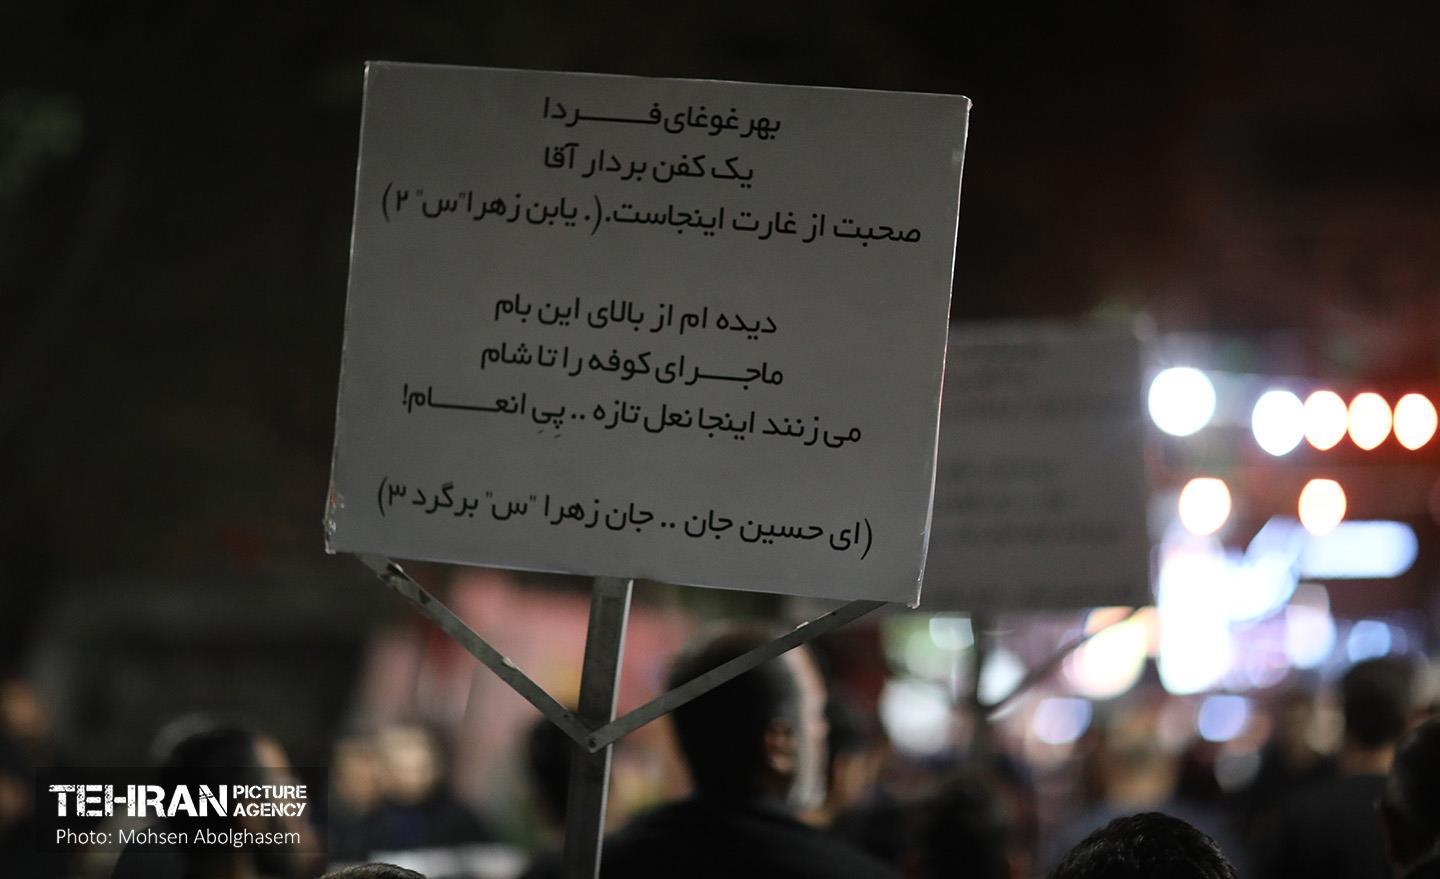 بهر غوغای فـــــــردا
یک کفن بردار آقا
صحبت از غارت اینجاست.(. یابن زهرا"س" ۲)
دیده ام از بالای این بام
ماجـــرای کوفه را تا شام
می زنند اینجا نعل تازه .. پِیِ انعـــــــام!
(ای حسین جان .. جان زهرا "س" برگرد ۳)
TEHRAN PICTURE AGENCY
Photo: Mohsen Abolghasem